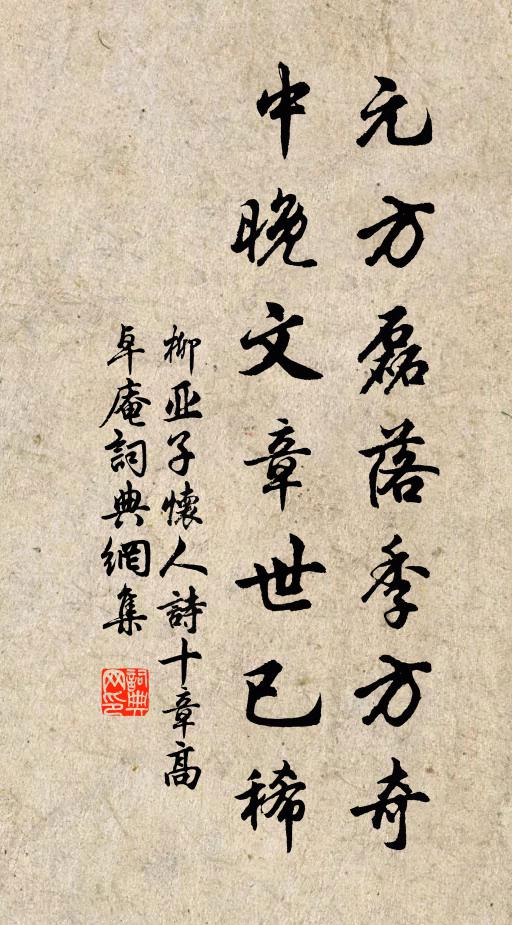 元方磊落季方奇
中晚文章世已稀
柳亚子懷人詩十章高
卓庵詞典網集
詞典网印